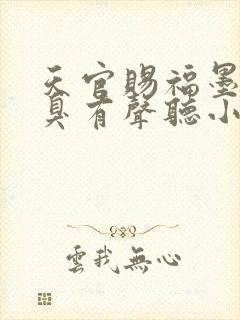 天官賜福墨
臭有聲聽小
雲我無心